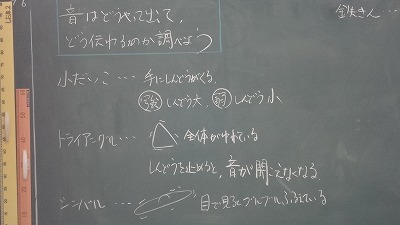 音はどうやって出て、
どう伝わるのか調べよう
鉄きん…
小だいこ… 手にしんどうがくる。
強 しんどう大、弱 しんどう小
トライアングル… 全体がゆれている
しんどうを止めると、音が聞こえなくなる。
シンバル… 目で見るとブルブルふるえている